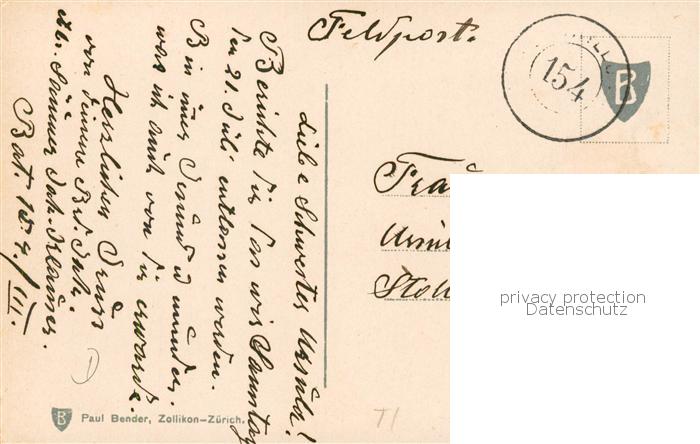 Feldpost.
154
B
Frau
Stol
privacy protection
Datenschutz
Liebe Schwester Ursula!
Berichte Dir das wir Samstag
den 21. Juli entlassen werden.
Bin immer Gesund u munder.
was ich auch von Dir erwarte.
Herzlichen Gruss
von Deinem Brd. Jak.
Bat. 154/III.
B
Paul Bender, Zollikon-Zürich.